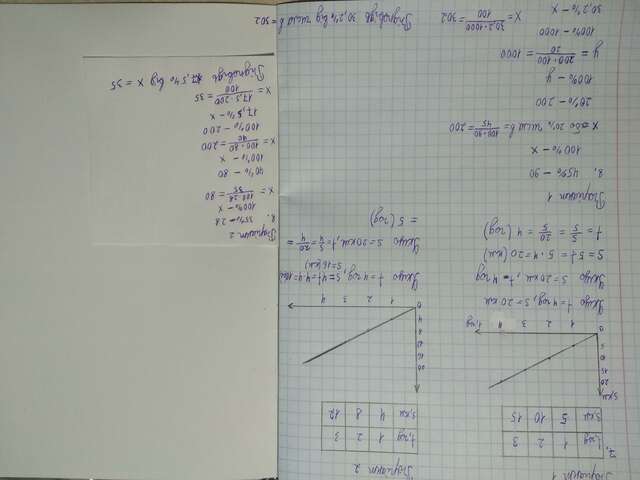 Варіант 1
7.
t, год 1 2 3
s, км 5 10 15
s, км
20
15
5
0 1 2 3 4 t, год
Якщо t = 4 год, s = 20 км
Якщо s = 20 км, t = 4 год
s = 5t = 5·4 = 20 (км)
t = s/5 = 20/5 = 4 (год)
Варіант 1
8. 45% – 90
100% – x
x або 20% числа b = 100·90/45 = 200
20% – 200
100% – y
y = 200·100/20 = 1000
100% – 1000
30,2% – x
x = 30,2·1000/100 = 302
Відповідь 30,2% від числа b = 302
Варіант 2
t, год 1 2 3
s, км 4 8 12
20
16
12
8
4
0 1 2 3 4
Якщо t = 4 год, s = 4t = 4·4 = 16(км)
s = 16(км)
Якщо s = 20 км, t = s/4 = 20/4 =
= 5 (год)
Варіант 2
8. 35% – 28
100% – x
x = 100·28/35 = 80
40% – 80
100% – x
x = 100·80/40 = 200
100% – 200
17,5% – x
x = 17,5·200/100 = 35
Відповідь 17,5% від x = 35